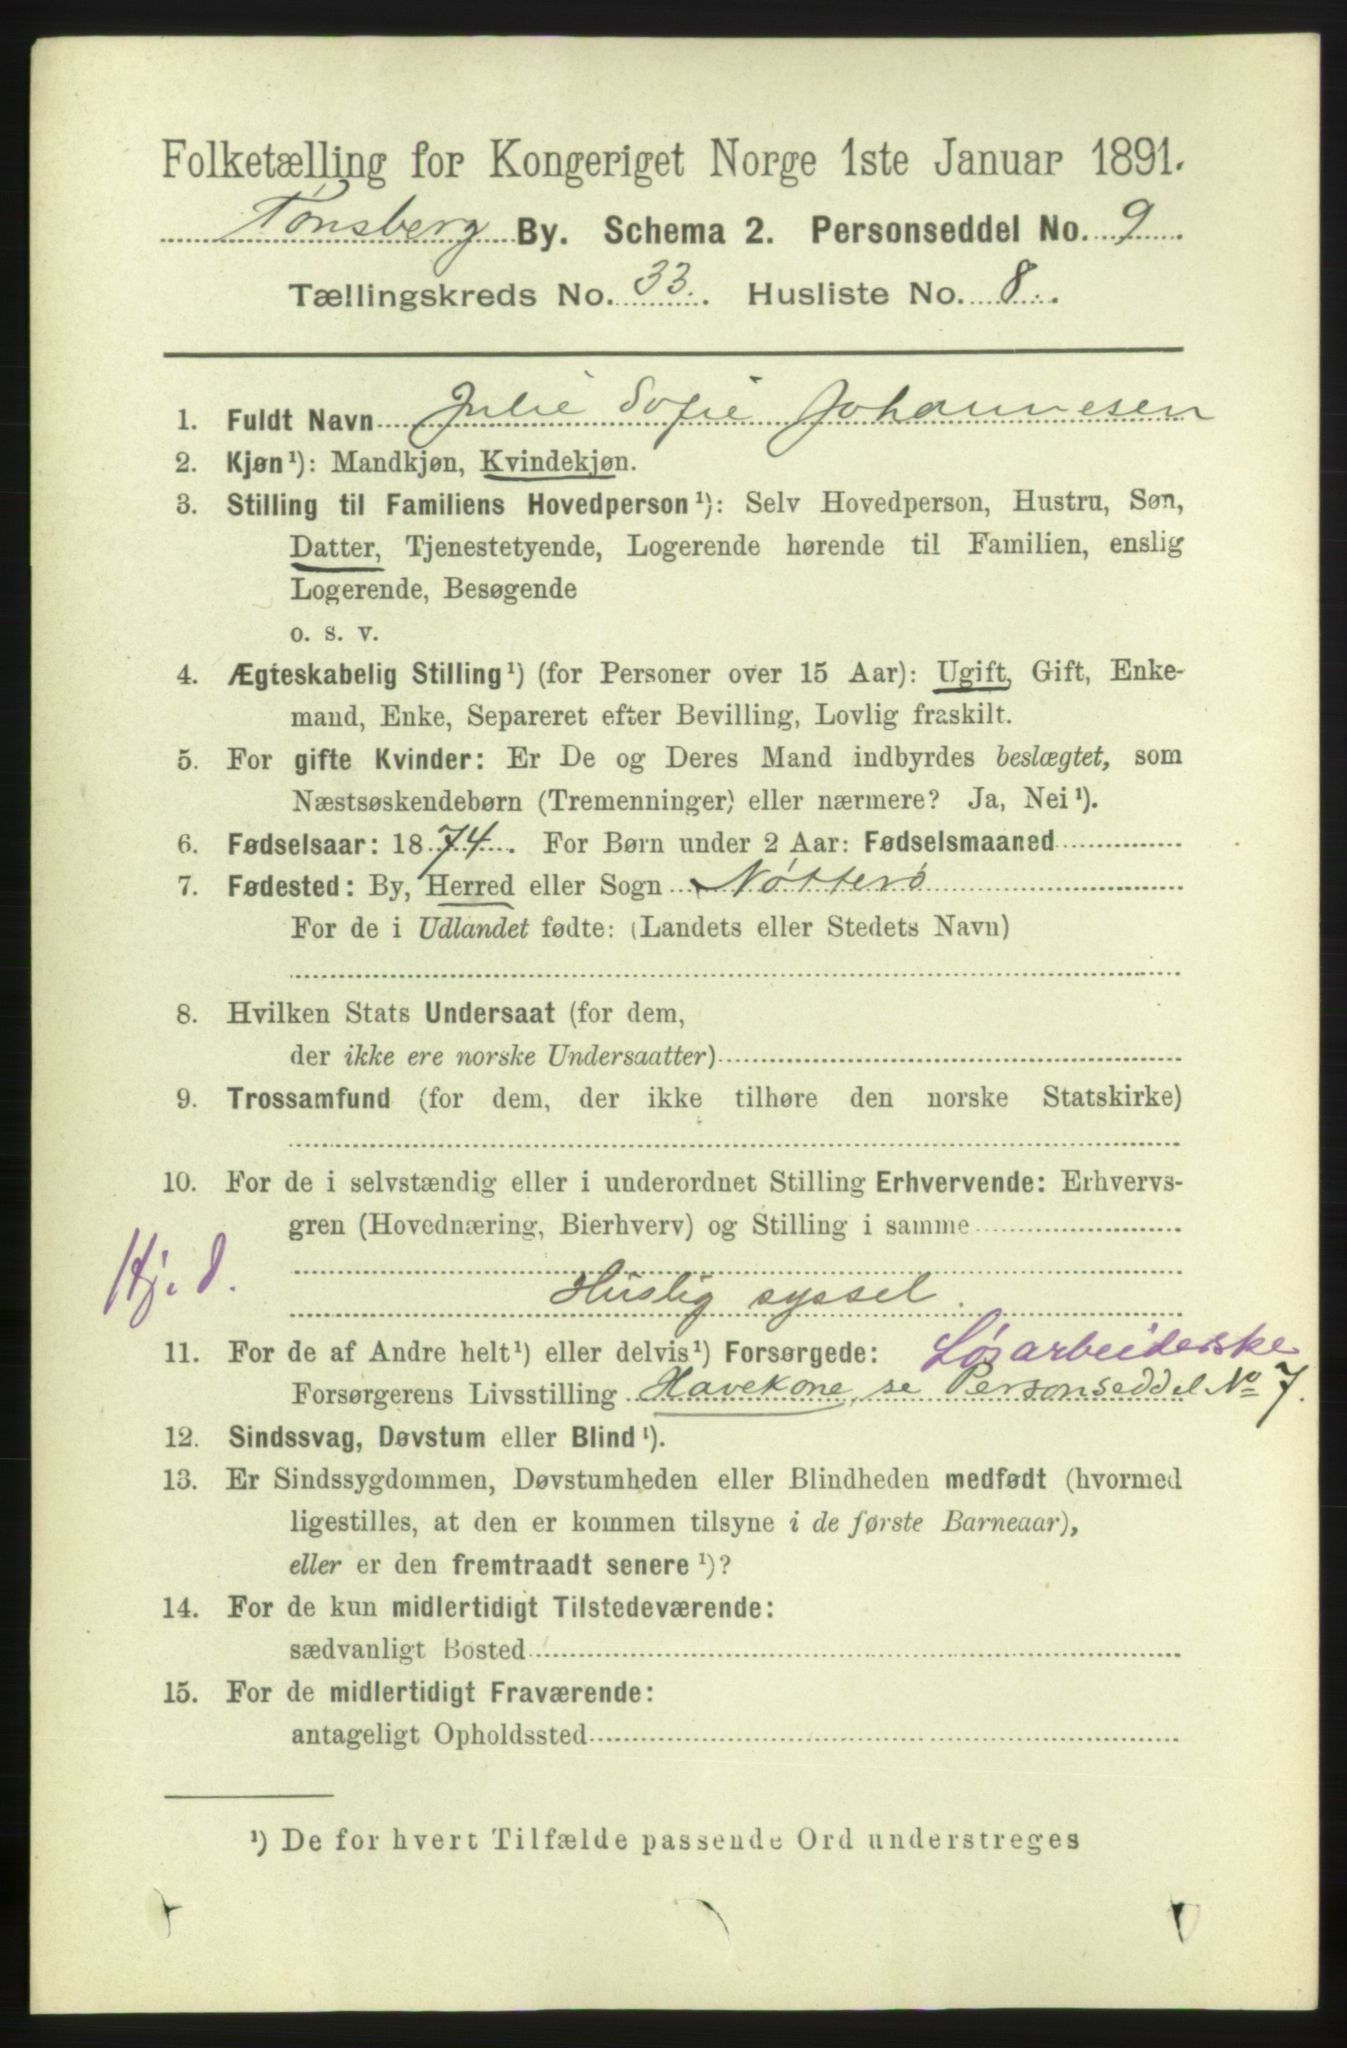 Folketælling for Kongeriget Norge 1ste Januar 1891.
Tønsberg By. Schema 2. Personseddel No. 9
Tællingskreds No. 33. Husliste No. 8.
1. Fuldt Navn Julie Sofie Johannesen
2. Kjøn¹): Mandkjøn, Kvindekjøn.
3. Stilling til Familiens Hovedperson¹): Selv Hovedperson, Hustru, Søn,
Datter, Tjenestetyende, Logerende hørende til Familien, enslig
Logerende, Besøgende
o. s. v.
4. Ægteskabelig Stilling¹) (for Personer over 15 Aar): Ugift, Gift, Enke-
mand, Enke, Separeret efter Bevilling, Lovlig fraskilt.
5. For gifte Kvinder: Er De og Deres Mand indbyrdes beslægtet, som
Næstsøskendebørn (Tremenninger) eller nærmere? Ja, Nei¹).
6. Fødselsaar: 1874. For Børn under 2 Aar: Fødselsmaaned
7. Fødested: By, Herred eller Sogn Nøtterø
For de i Udlandet fødte: (Landets eller Stedets Navn)
8. Hvilken Stats Undersaat (for dem,
der ikke ere norske Undersaatter)
9. Trossamfund (for dem, der ikke tilhøre den norske Statskirke)
10. For de i selvstændig eller i underordnet Stilling Erhvervende: Erhvervs-
gren (Hovednæring, Bierhverv) og Stilling i samme
Hj. d.
Huslig syssel.
11. For de af Andre helt¹) eller delvis¹) Forsørgede: Løsarbeiderske
Forsørgerens Livsstilling Havekone, se Personseddel No 7.
12. Sindssvag, Døvstum eller Blind¹).
13. Er Sindssygdommen, Døvstumheden eller Blindheden medfødt (hvormed
ligestilles, at den er kommen tilsyne i de første Barneaar),
eller er den fremtraadt senere¹)?
14. For de kun midlertidigt Tilstedeværende:
sædvanligt Bosted
15. For de midlertidigt Fraværende:
antageligt Opholdssted
¹) De for hvert Tilfælde passende Ord understreges